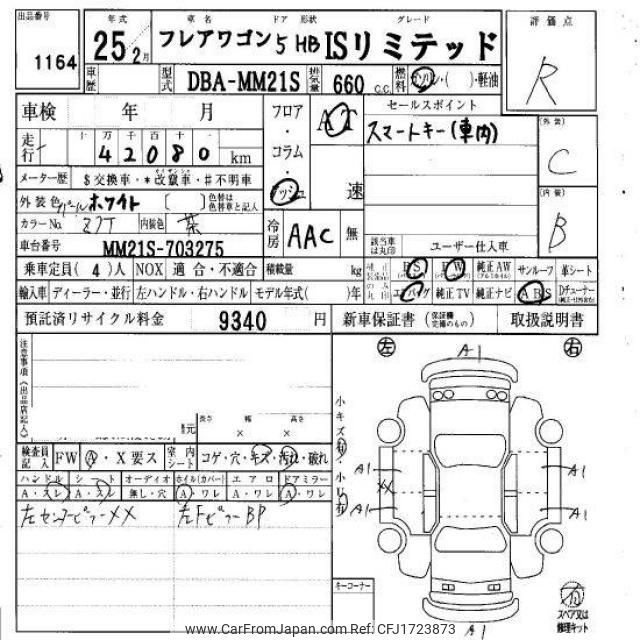 出品番号 年式 車名 ドア 形状 グレード 評価点
1164 25 2月 フレアワゴン 5 HB ISリミテッド R
車歴 型式 DBA-MM21S 排気量 660 c.c. 燃料 ガソリン・( )・軽油
車検 年 月 フロア・コラム・ AT 速 セールスポイント
スマートキー(車内)
走行 十 万 千 百 十
42080 km
(外装) C
メーター歴 $交換車・*改竄車・#不明車
外装色 パールホワイト [ ] 色替は色替車と記入
(内装) B
カラーNo. Z7T 内装色 茶 冷房 AAC 無 該当車は丸印 ユーザー仕入車
車台番号 MM21S-703275
乗車定員(4)人 NOX 適合・不適合 積載量 kg 純正のみ丸印 PS PW 純正AW サンルーフ 革シート
輸入車 ディーラー・並行 左ハンドル・右ハンドル モデル年式( )年 エアバッグ 純正TV 純正ナビ ABS Dチューナー
預託済リサイクル料金 9340 円 新車保証書 (保証欄完備のもの) 取扱説明書
注意事項(出品店記入)
左 A1 右
長さ 幅 高さ
元 × ×
小キズ有・小凹有
検査員記入 FW A・X要ス 室内シート コゲ・穴・キズ・汚れ・破れ
ハンドル シート オーディオ ホイル(カバー) エアロ ドアミラー
A・スレ A・スレ 無し・穴 A・ワレ A・ワレ A・ワレ
左センターピラーXX 左FピラーBP
A1 A1
XX
A1 A1
キーコーナー
A1
スペア又は修理キット
www.CarFromJapan.com Ref: CFJ1723873